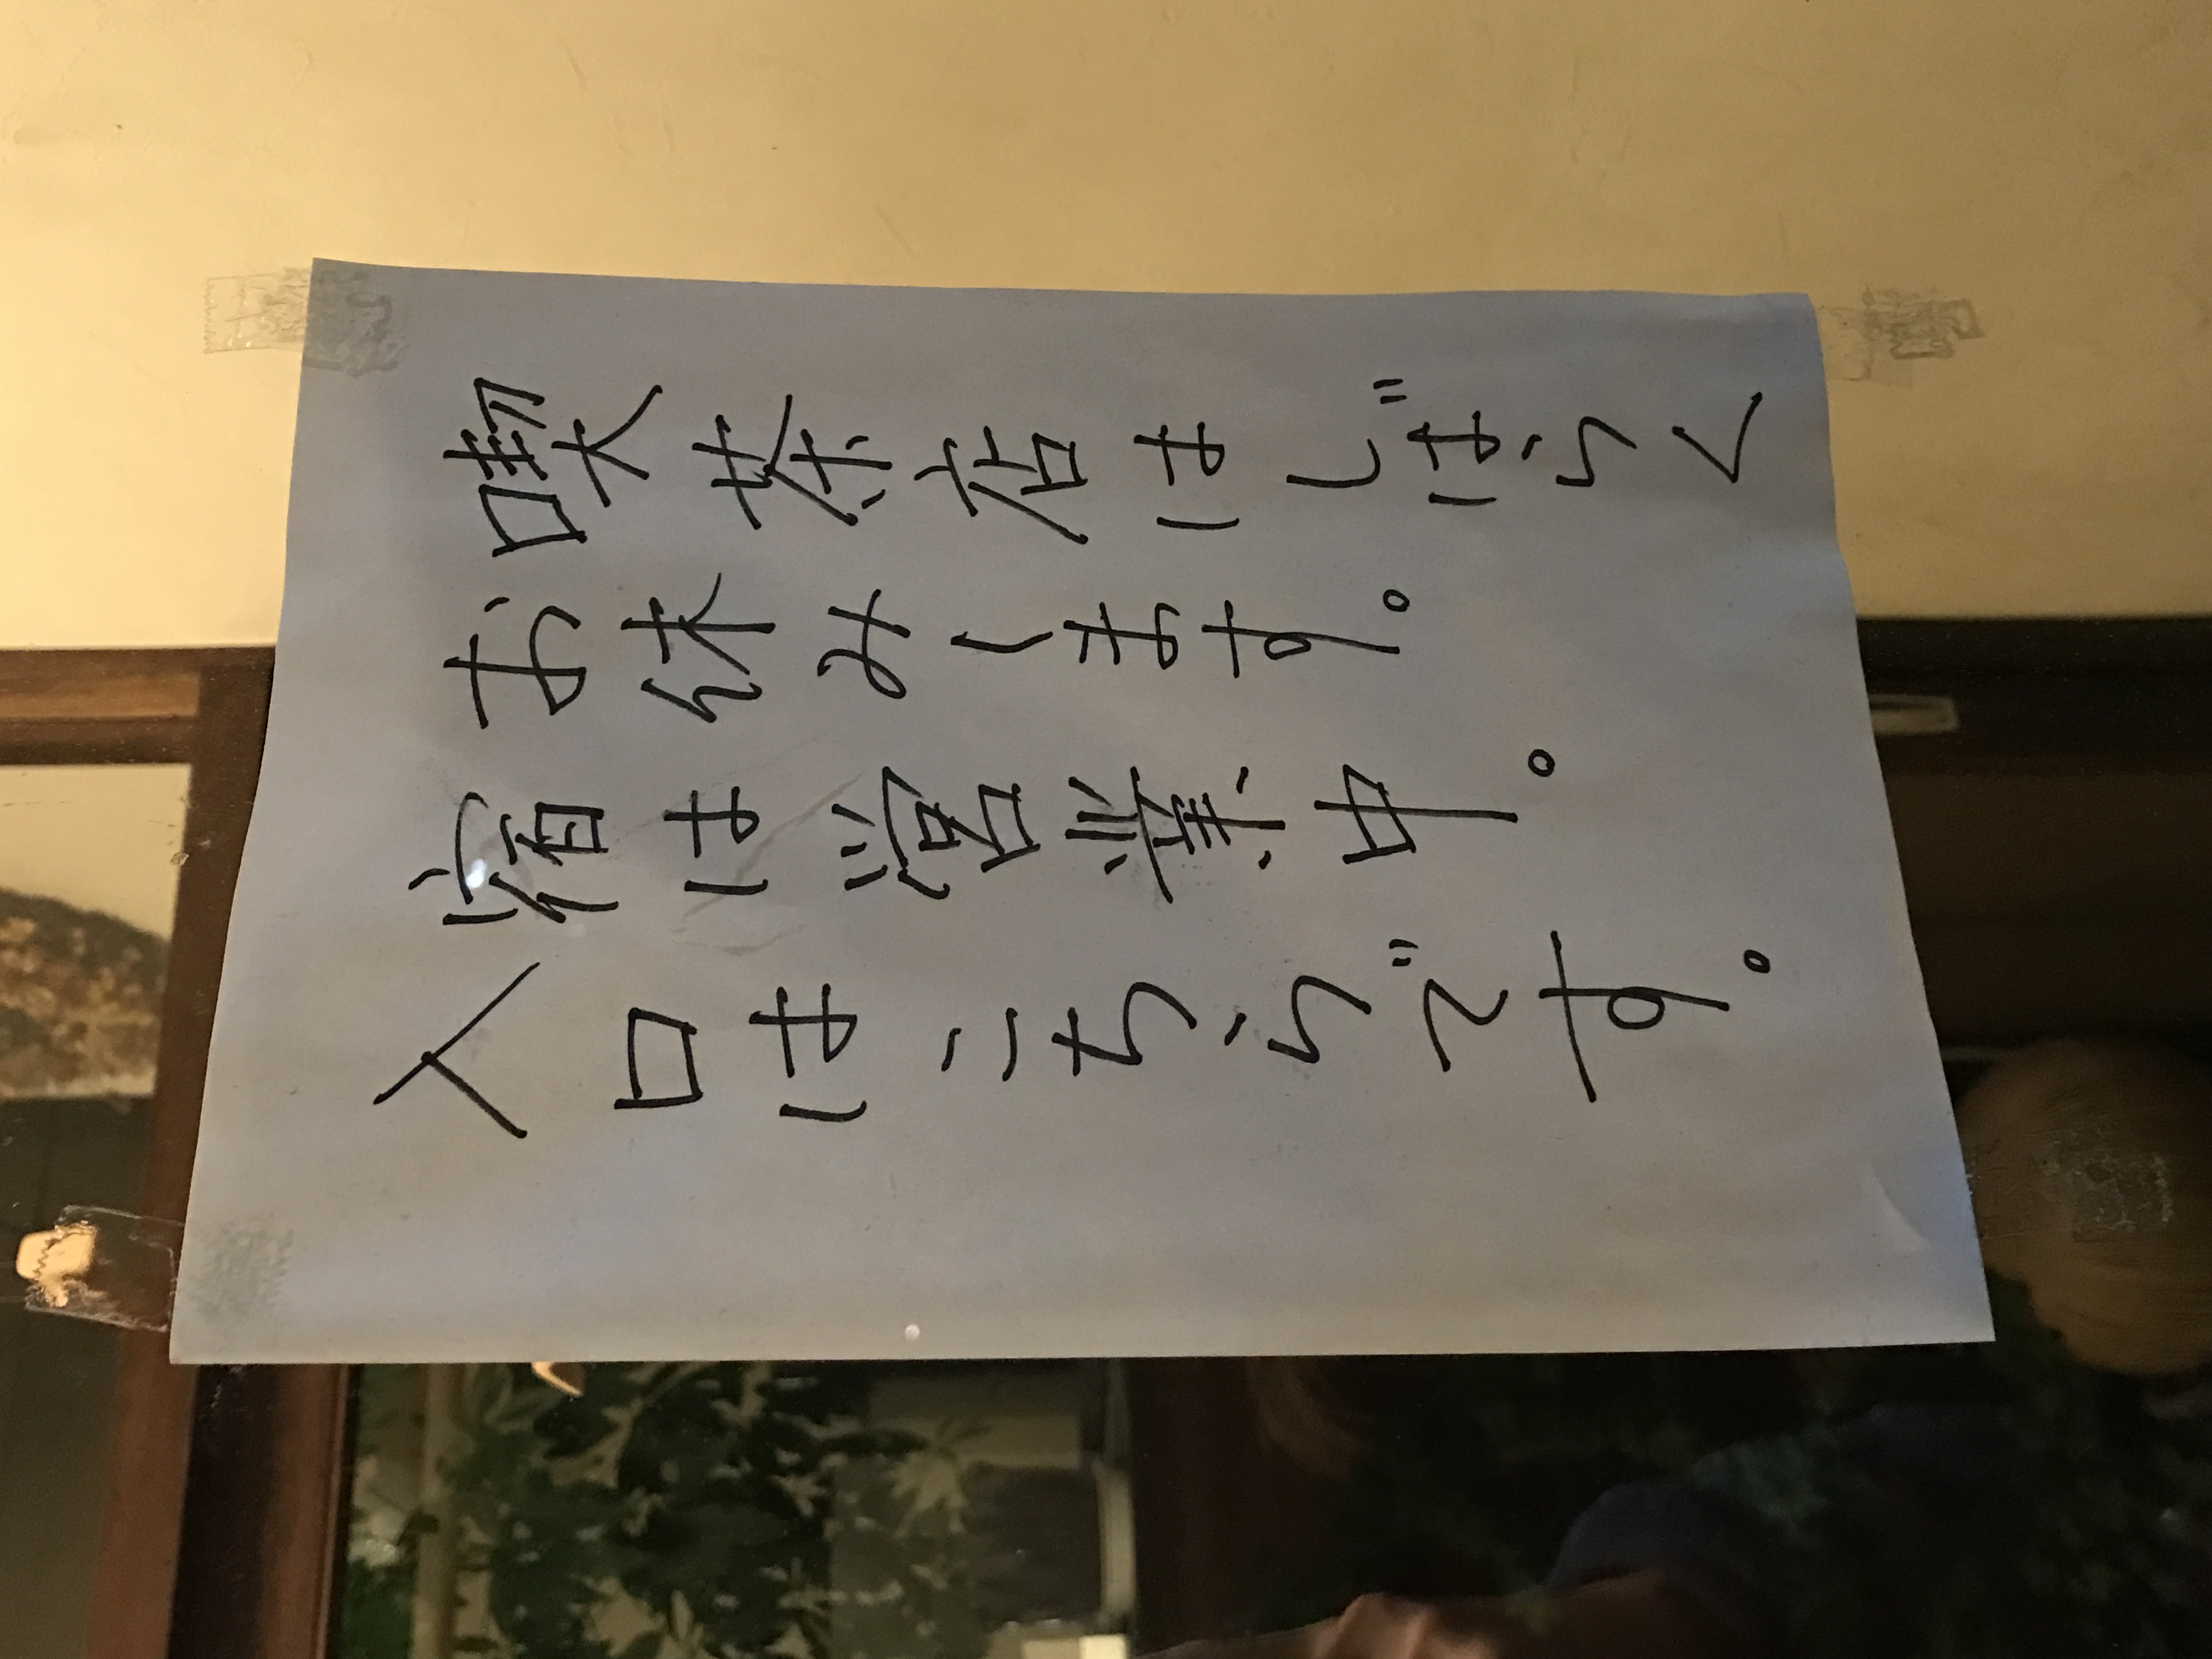 喫茶店はしばらく
お休みします。
宿は営業中。
入口はこちらです。